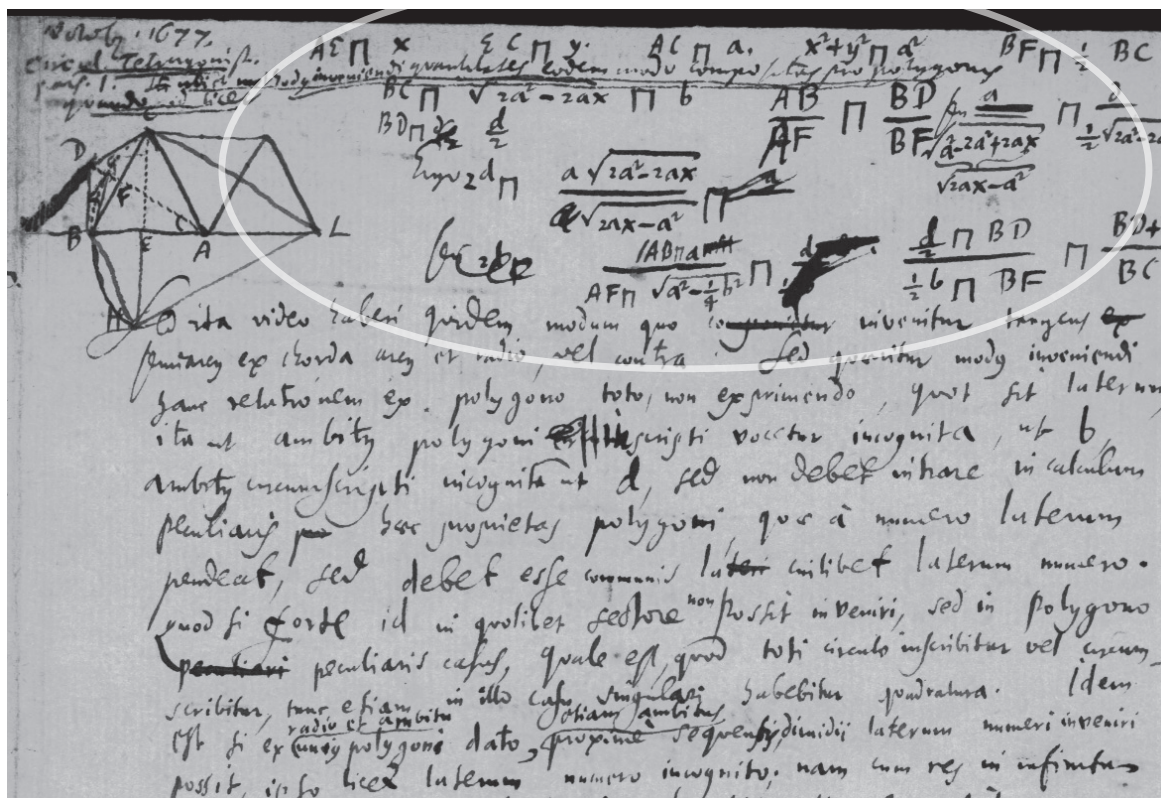 1677.
AE Π x EC Π y. AC Π a. x²+y² Π a² BF Π ½ BC
Circul. Tetragonist.
pars. 1. methodus inveniendi quantitates eodem modo compositas pro polygonis
BC Π √2a²-2ax Π b AB/AF Π BD/BF
BD Π d/2
Ergo 2d Π a√2a²-2ax / √2ax-a² Π
AB Π a / AF Π √a²-¼b² Π d/2 Π BD / ½b Π BF Π BD+ / BC
C
D
F
B E A L
H
ita video haberi quidem modum quo invenitur tangens
semiarcus ex chorda arcus et radio, vel contra. Sed quaeritur modus inveniendi
hanc relationem ex polygono toto, non exprimendo, quot sit laterum
ita ut ambitus polygoni inscripti vocetur incognita, ut b,
ambitus circumscripti incognita ut d, sed non debet intrare in calculum
peculiaris haec proprietas polygoni, quae à numero laterum
pendeat, sed debet esse communis cuilibet laterum numero.
quod si forte id in quolibet sectore non possit inveniri, sed in polygono
peculiari peculiaris casus, quale est, quod toti circulo inscribitur vel circum-
scribitur, tunc etiam in illo casu singulari habebitur quadratura. Idem
est si ex radio et ambitu unius polygoni dato, etiam ambitus proxime sequentis, dimidii laterum numeri inveniri
possit, ipso licet laterum numero incognito; nam cum res in infinitum